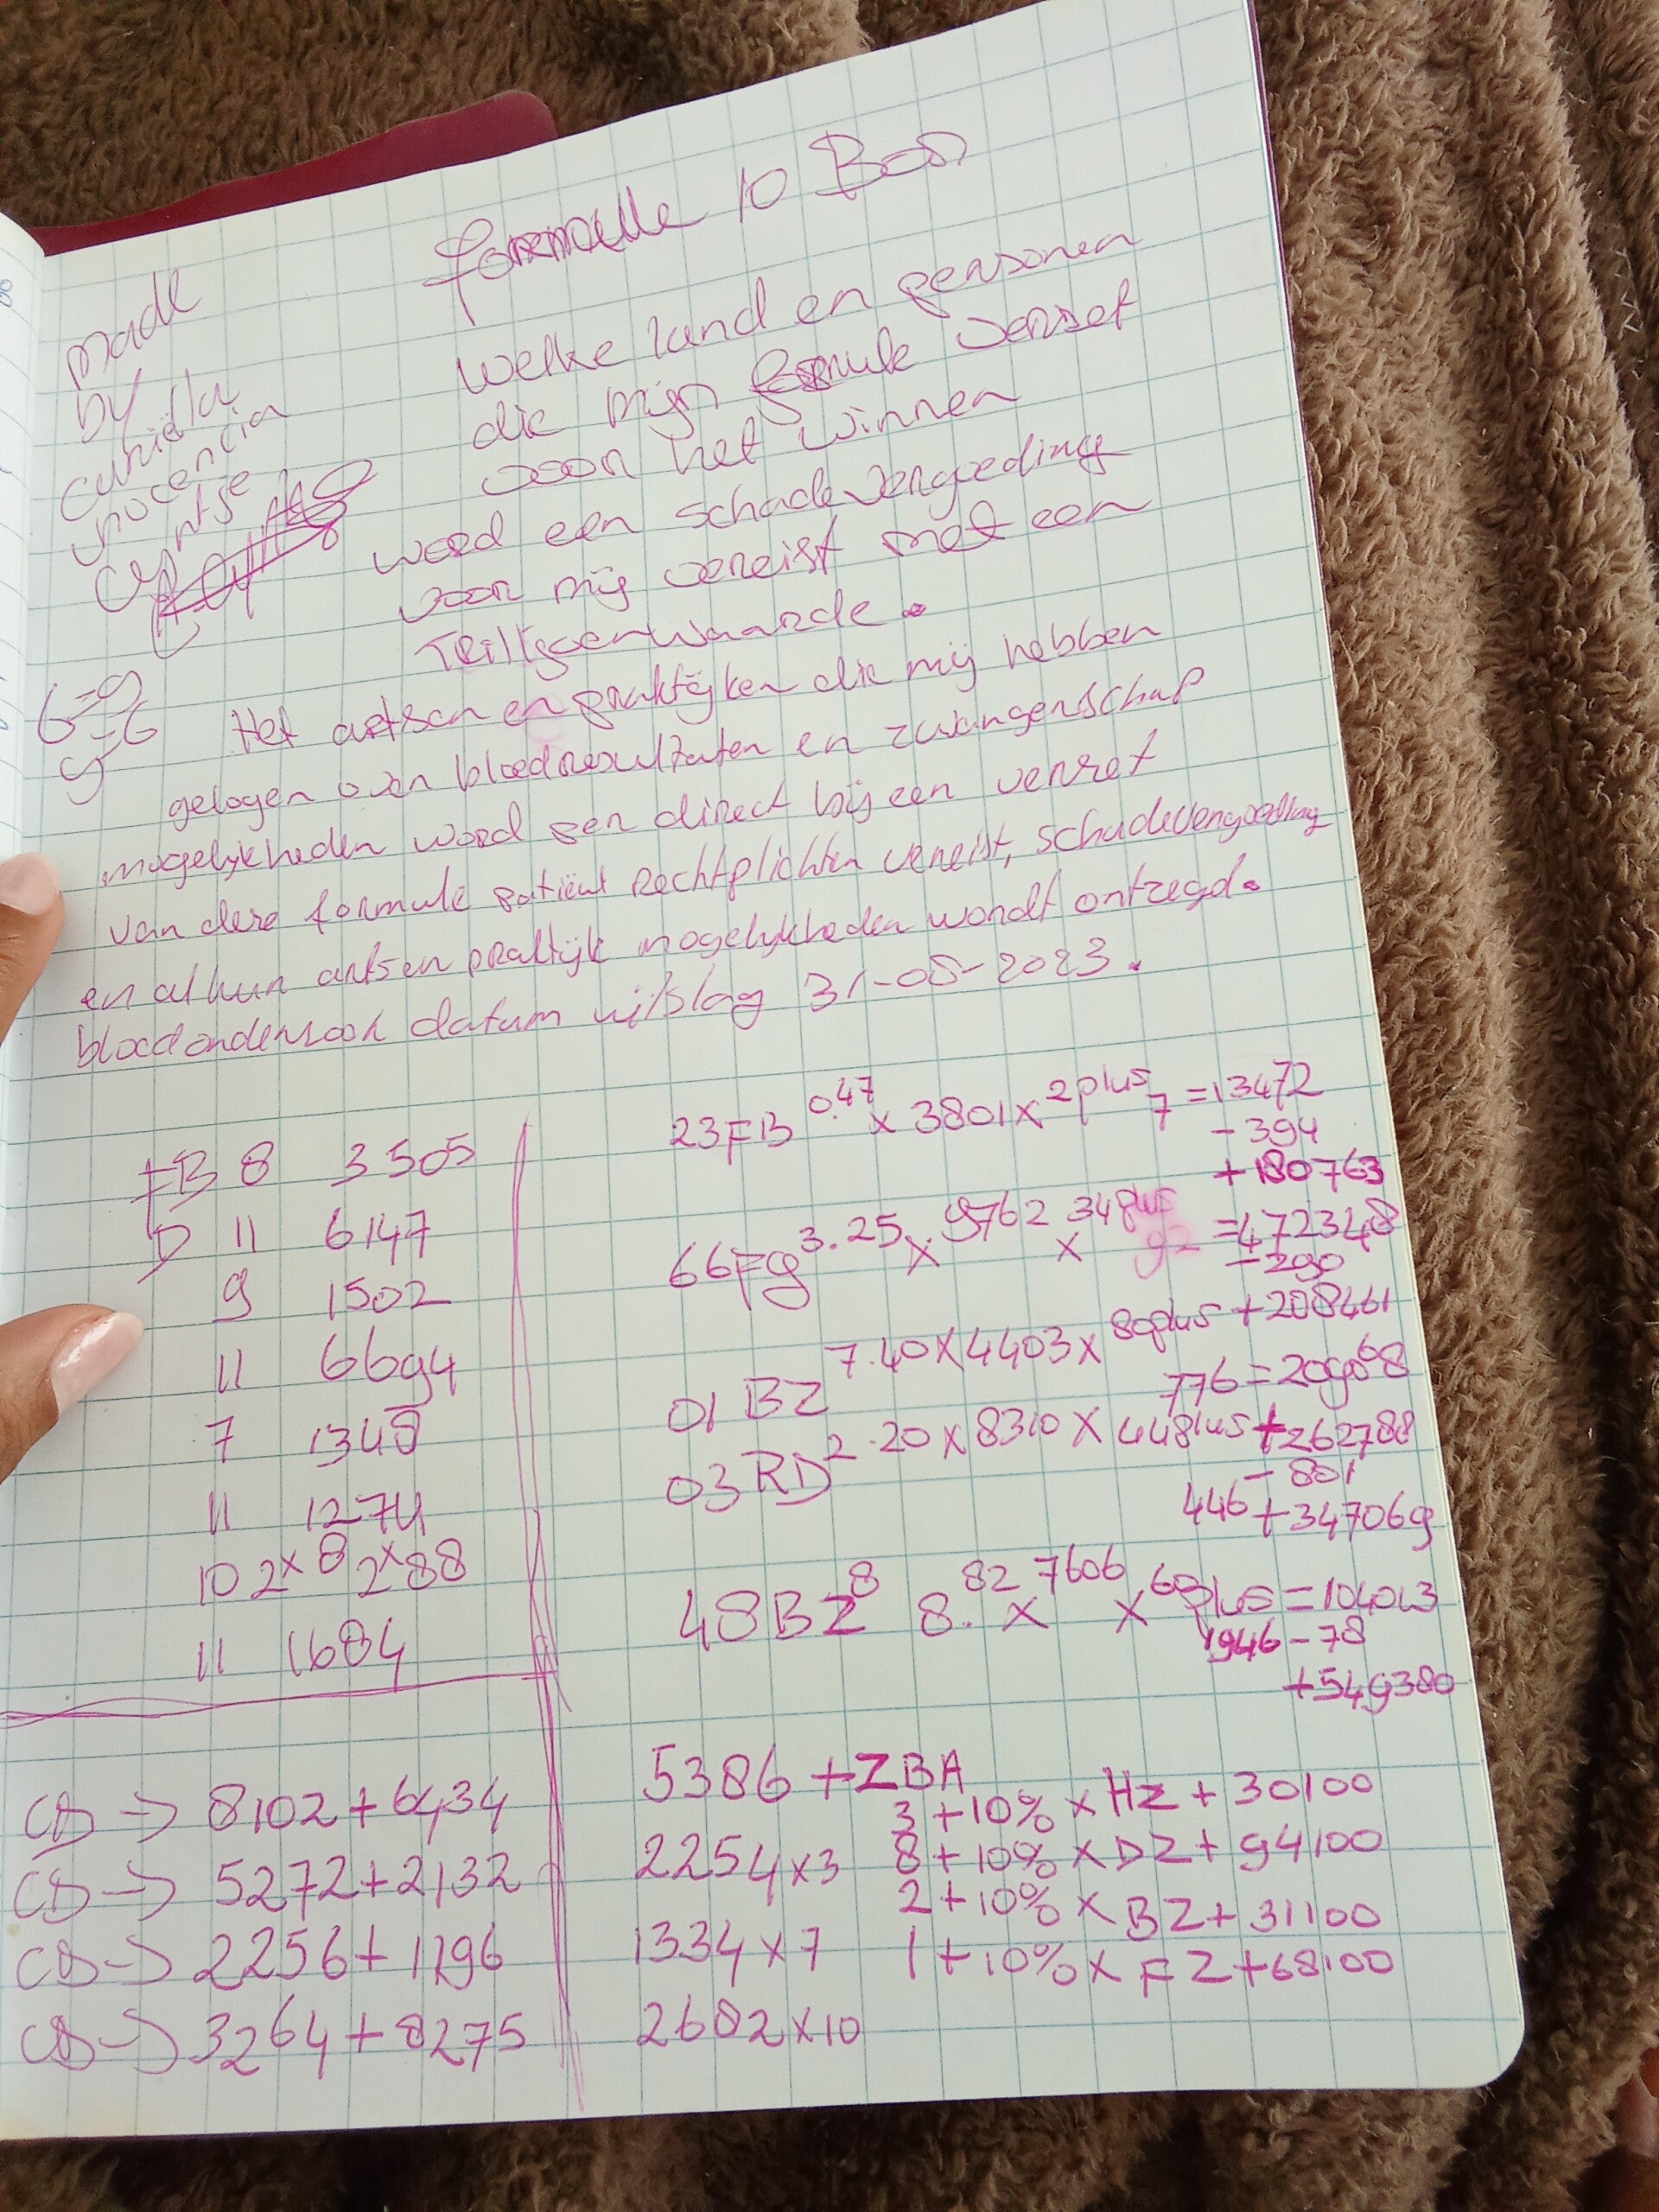 formulle 10 Bon
made
by
Camiella
ynocencia
Cyntje
welke land en personen
die mijn formule verzet
voor het winnen
word een schadevergoeding
voor mij vereist met een
Teiltgoenwaarde.
6=9
9=6
Het artsen en praktijken die mij hebben
gelogen over bloedresultaten en zwangerschap
mogelijkheden word per direct bij een verzet
van deze formule patiënt Rechtplichten vereist, schadevergoeding
en al hun artsen praktijk mogelijkheden wordt ontzegd.
bloedonderzoek datum uitslag 31-05-2023.
FB 8 3505
D 11 6147
9 1502
11 6694
7 1348
11 1274
10 2x8 2x88
11 1684
23FB 0.47 x 3801 x 2plus 7 = 13472
- 394
+ 180763
66Fg 3.25 x 9762 x 348plus 92 = 472348
- 290
01 BZ 7.40 x 4403 x 89plus + 208461
776 = 209068
03 RD 2.20 x 8310 x 448plus + 262788
- 801
446 + 347069
48BZ8 8.82 x 7606 x 60plus = 104013
1946 - 78
+ 549380
CD → 8102 + 6434
CD → 5272 + 2132
CD → 2256 + 1196
CD → 3264 + 8275
5386 + ZBA
3 + 10% x HZ + 30100
2254 x 3 8 + 10% x DZ + 94100
2 + 10% x BZ + 31100
1334 x 7 1 + 10% x FZ + 68100
2682 x 10